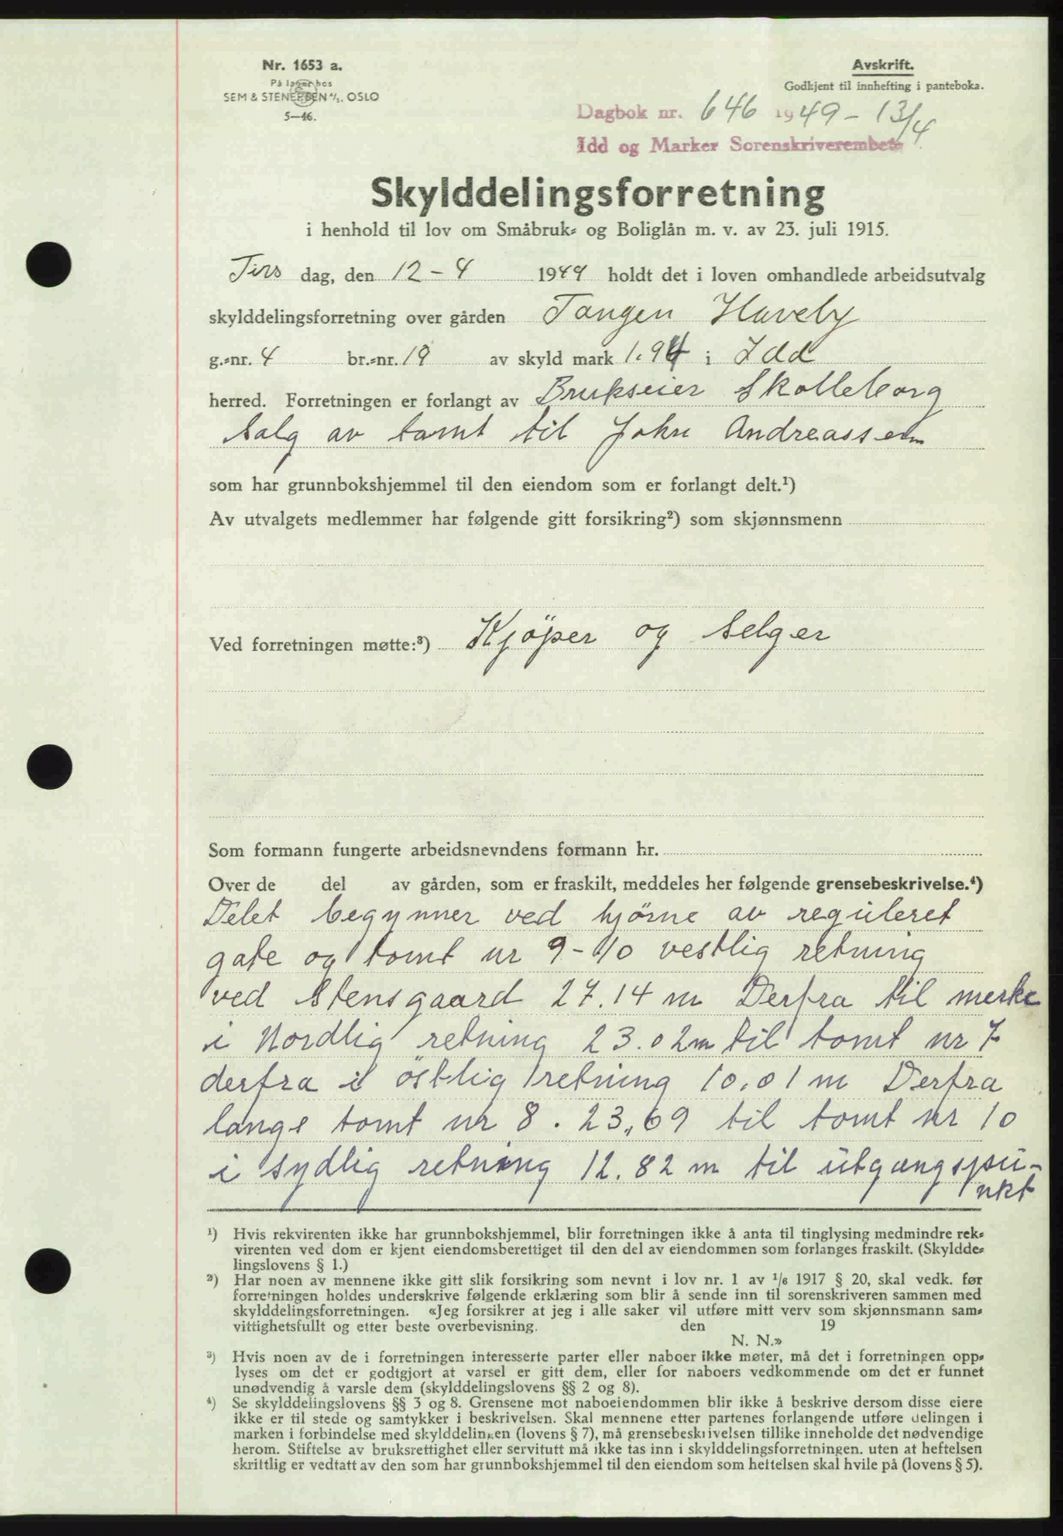 Nr. 1653 a.
På lager hos
SEM & STENERSEN A/S. OSLO
5—46.
Avskrift.
Godkjent til innhefting i panteboka.
Dagbok nr. 646 1949 - 13/4
Idd og Marker Sorenskriverembete
Skylddelingsforretning
i henhold til lov om Småbruk- og Boliglån m. v. av 23. juli 1915.
Tirs dag, den 12 - 4 1949 holdt det i loven omhandlede arbeidsutvalg
skylddelingsforretning over gården Tangen Haveby
g.-nr. 4 br.-nr. 19 av skyld mark 1.94 i Idd
herred. Forretningen er forlangt av Brukseier Skolleborg
Salg av tomt til John Andreassen
som har grunnbokshjemmel til den eiendom som er forlangt delt.¹)
Av utvalgets medlemmer har følgende gitt forsikring²) som skjønnsmenn
Ved forretningen møtte:³) Kjöper og Selger
Som formann fungerte arbeidsnevndens formann hr.
Over de del av gården, som er fraskilt, meddeles her følgende grensebeskrivelse.⁴)
Delet begynner ved hjörne av reguleret
gate og tomt nr 9-10 vestlig retning
ved Stensgaard 27.14 m Derfra til merke
i Nordlig retning 23.02 m til tomt nr 7
derfra i östlig retning 10.01 m Derfra
langs tomt nr 8. 23,69 til tomt nr 10
i sydlig retning 12.82 m til utgangspu-
nkt
¹) Hvis rekvirenten ikke har grunnbokshjemmel, blir forretningen ikke å anta til tinglysing medmindre rek-
virenten ved dom er kjent eiendomsberettiget til den del av eiendommen som forlanges fraskilt. (Skyldde-
lingslovens § 1.)
²) Har noen av mennene ikke gitt slik forsikring som nevnt i lov nr. 1 av 1/6 1917 § 20, skal vedk. før
forretningen holdes underskrive følgende erklæring som blir å sende inn til sorenskriveren sammen med
skylddelingsforretningen. «Jeg forsikrer at jeg i alle saker vil utføre mitt verv som skjønnsmann sam-
vittighetsfullt og etter beste overbevisning. den 19
N. N.»
³) Hvis noen av de i forretningen interesserte parter eller naboer ikke møter, må det i forretningen opp-
lyses om det er godtgjort at varsel er gitt dem, eller for naboers vedkommende om det er funnet
unødvendig å varsle dem (skylddelingslovens §§ 2 og 8).
⁴) Se skylddelingslovens §§ 3 og 8. Grensene mot naboeiendommen blir ikke å beskrive dersom disse eiere
ikke er til stede og samtykker i beskrivelsen. Skal mennene etter partenes forlangende utføre delingen i
marken i forbindelse med skylddelingen (lovens § 7), må grensebeskrivelsen tillike inneholde det nødvendige
herom. Stiftelse av bruksrettighet eller servitutt må ikke tas inn i skylddelingsforretningen, uten at heftelsen
skriftlig er vedtatt av den som har grunnbokshjemmel til den eiendom som heftelsen skal hvile på (lovens § 5).